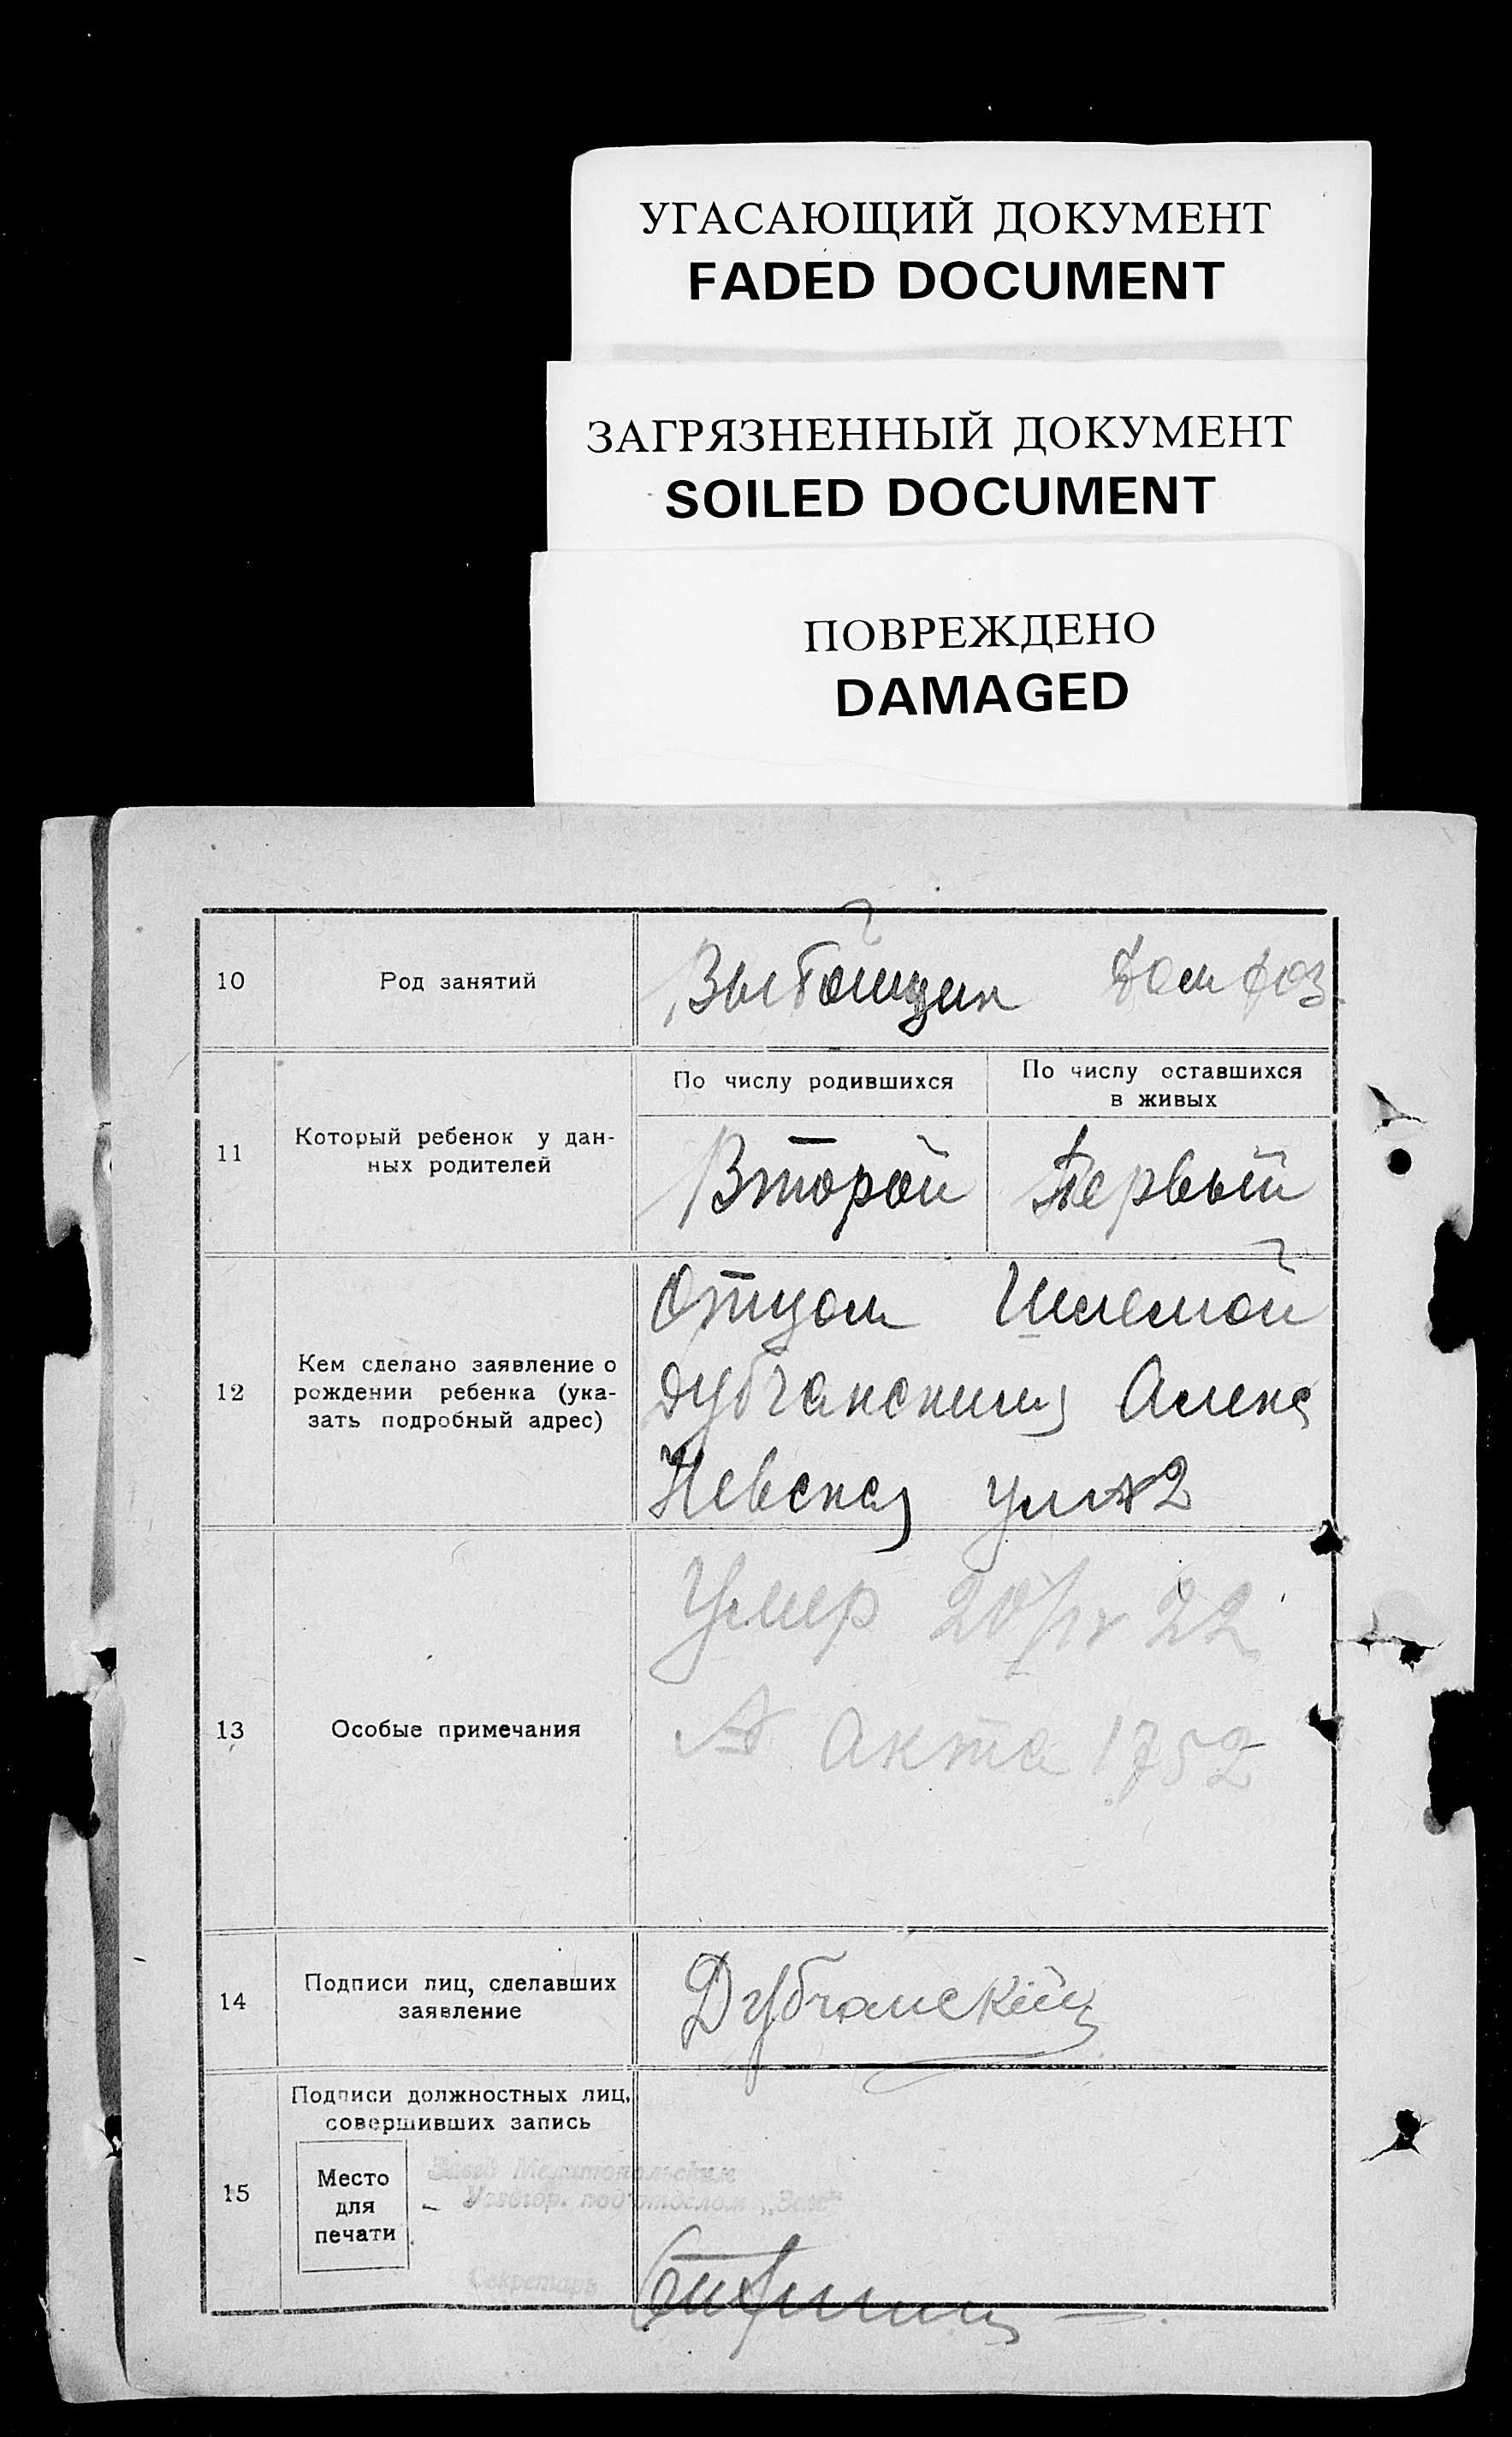 УГАСАЮЩИЙ ДОКУМЕНТ
FADED DOCUMENT
ЗАГРЯЗНЕННЫЙ ДОКУМЕНТ
SOILED DOCUMENT
ПОВРЕЖДЕНО
DAMAGED
10
Род занятий
Дом хоз.
11
Который ребенок у дан-
ных родителей
По числу родившихся
По числу оставшихся
в живых
Второй
Первый
12
Кем сделано заявление о
рождении ребенка (ука-
зать подробный адрес)
Отцом Шлемой
Дубчанским Алекс
Невская ул № 2
13
Особые примечания
Умер 20/IV 22
№ Акта 1752
14
Подписи лиц, сделавших
заявление
Дубчанский
15
Подписи должностных лиц,
совершивших запись
Место
для
печати
Завед Мелитопольским
подотделом „Загс"
Секретарь